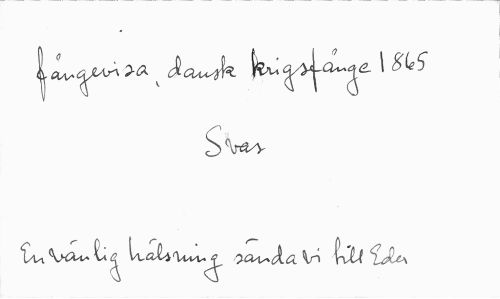 fångevisa, dansk krigsfånge 1865
Svar
En vänlig hälsning sända vi till Eder